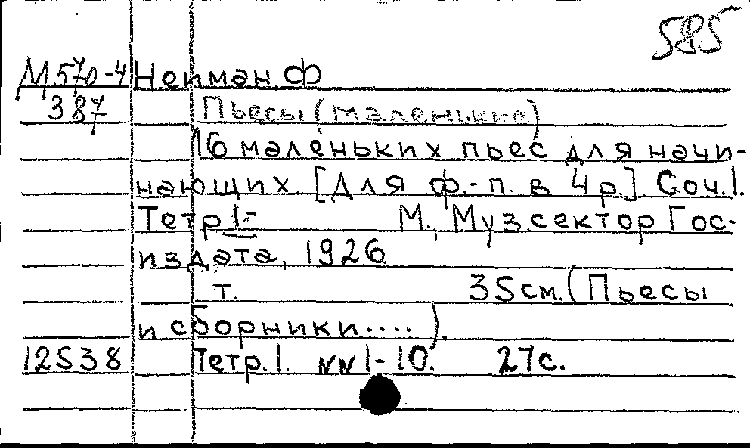 585
М570-4 Нейман Ф
387 Пьесы (маленькие)
16 маленьких пьес для начи-
нающих. [Для ф.-п. в 4 р.] Соч. 1.
Тетр 1.- М., Музсектор Гос-
издата, 1926
т. 35 см. (Пьесы
и сборники....).
12538 Тетр. 1. NN 1-10. 27 с.